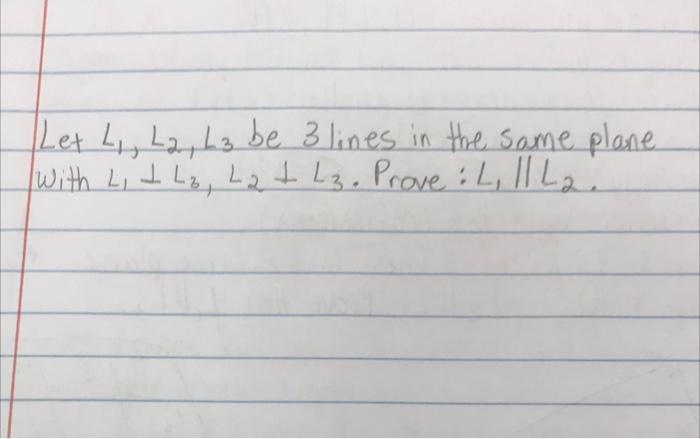 Let L₁, L₂, L₃ be 3 lines in the same plane
with L₁ ⊥ L₃, L₂ ⊥ L₃. Prove : L₁ || L₂.